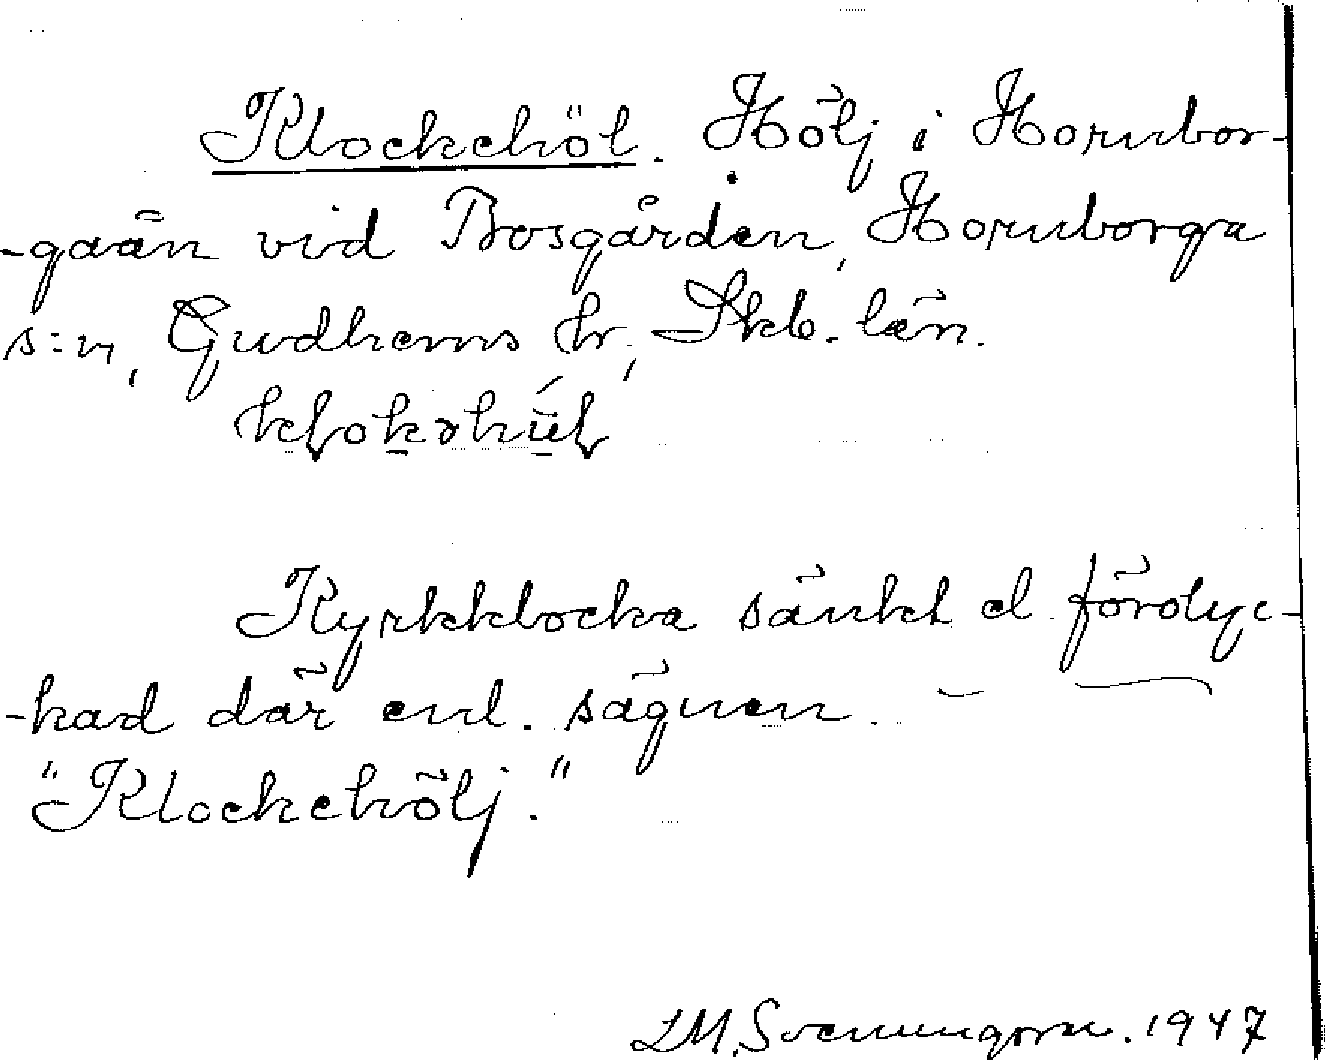 Klockehöl. Hölj i Hornbor-
-gaån vid Bosgården, Hornborga
s:n, Gudhems hr, Skb. län.
Kyrkklocka sänkt el förolyc-
-kad där enl. sägnen.
"Klockehölj."
LM. Svenungsson. 1947